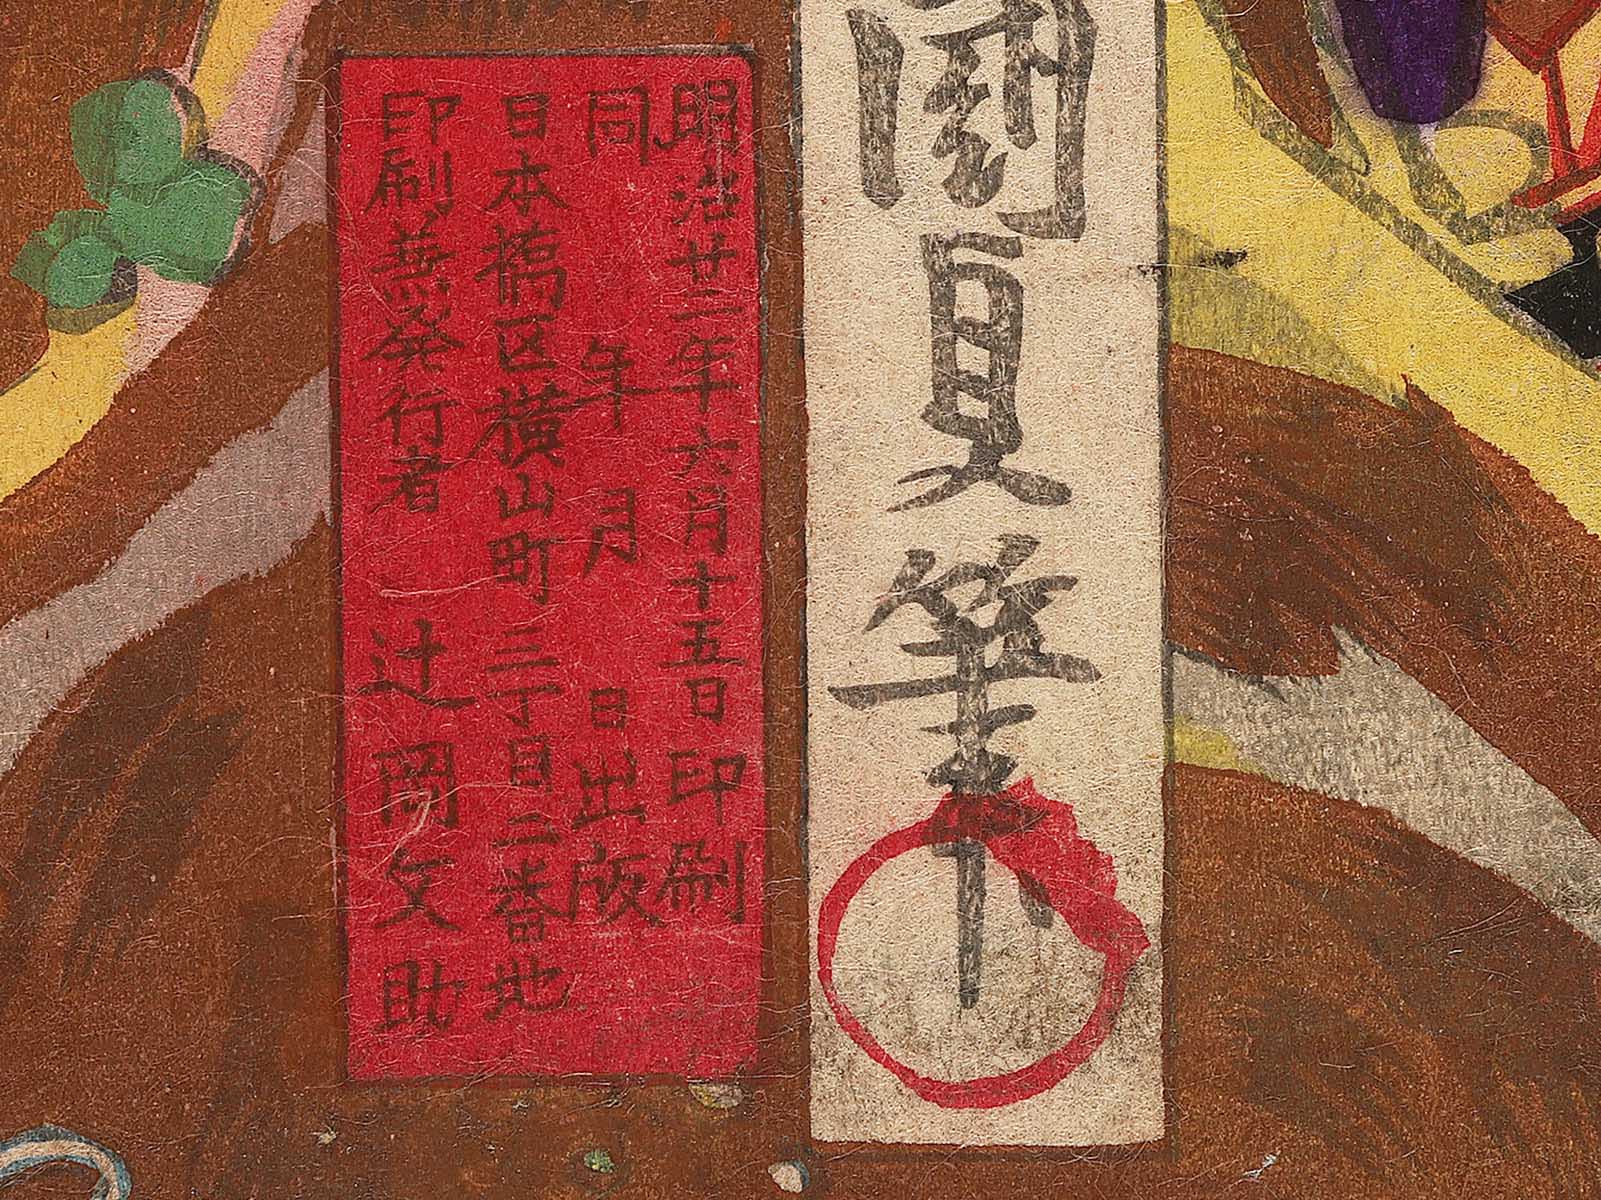 國貞筆
明治廿二年六月十五日印刷
同年月日出版
日本橋区横山町三丁目二番地
印刷兼発行者 辻岡文助